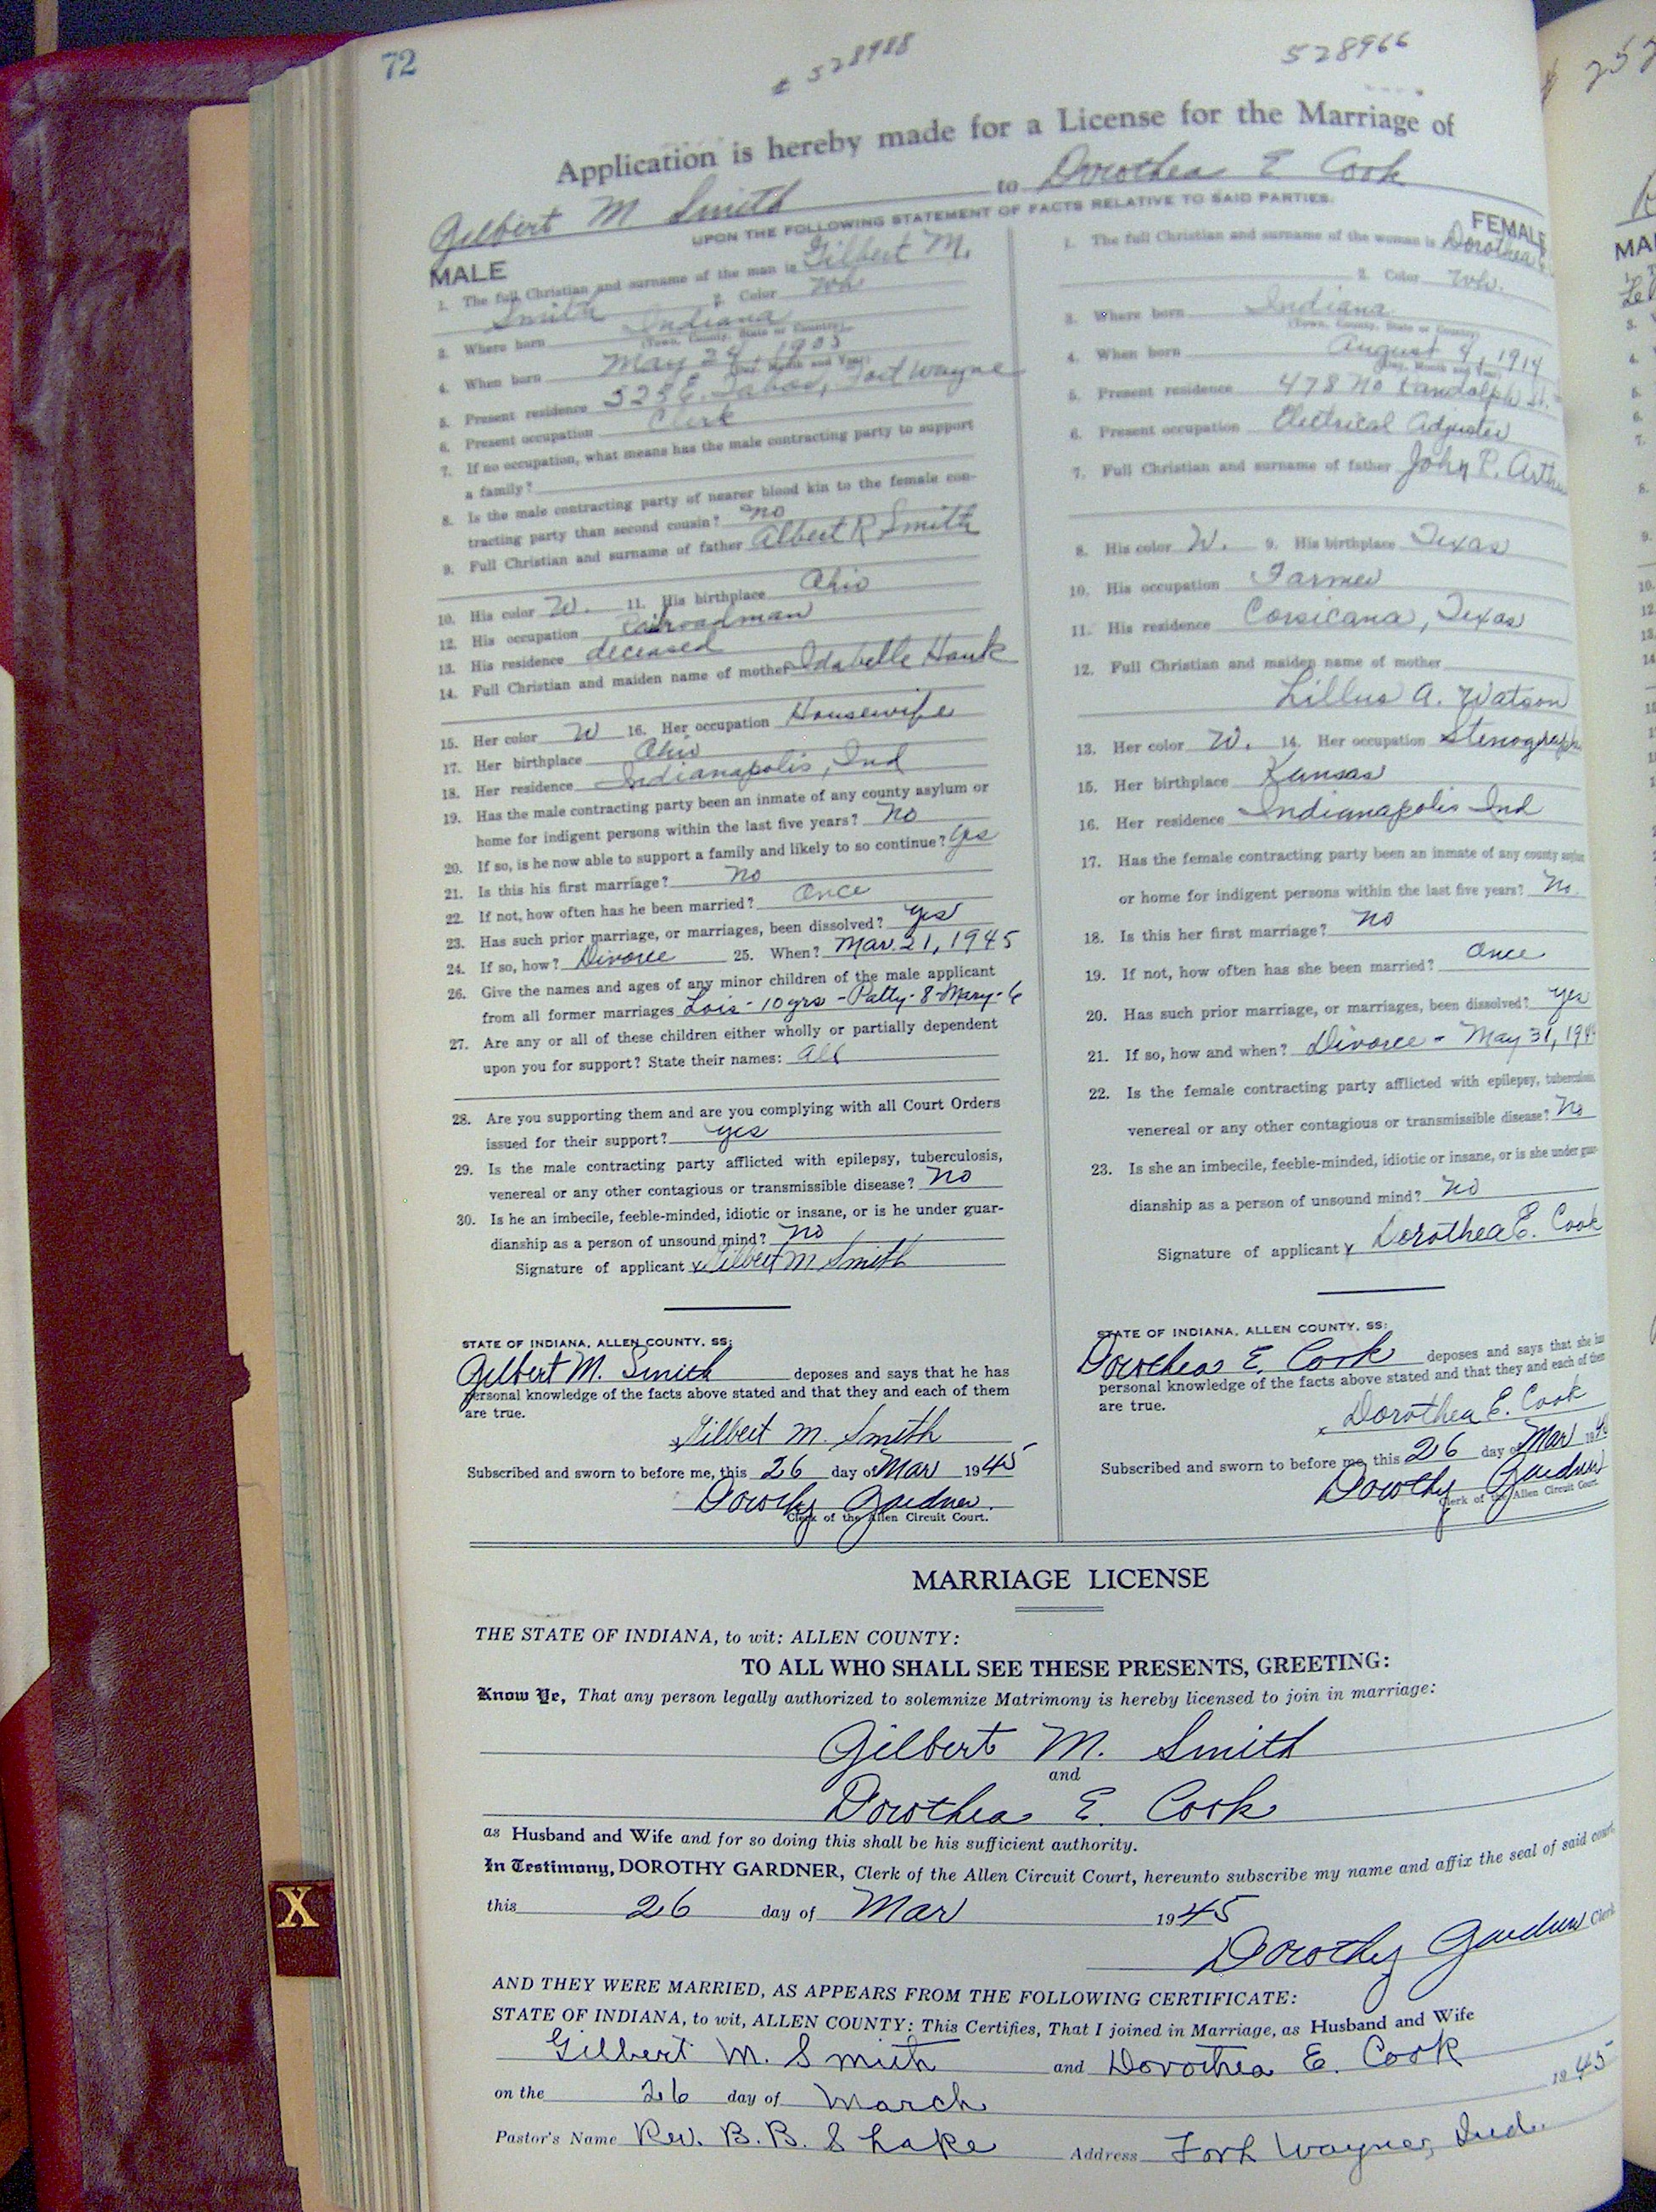 72
# 528988
528966
Application is hereby made for a License for the Marriage of
Gilbert M. Smith to Dorothea E Cook
UPON THE FOLLOWING STATEMENT OF FACTS RELATIVE TO SAID PARTIES:
MALE
1. The full Christian and surname of the man is Gilbert M.
Smith 2. Color Wh
3. Where born Indiana
(Town, County, State or Country)
4. When born May 24, 1905
(Day, Month and Year)
5. Present residence E. Fort Wayne
6. Present occupation Clerk
7. If no occupation, what means has the male contracting party to support
a family?
8. Is the male contracting party of nearer blood kin to the female con-
tracting party than second cousin? no
9. Full Christian and surname of father Albert R Smith
10. His color W. 11. His birthplace Ohio
12. His occupation Railroadman
13. His residence deceased
14. Full Christian and maiden name of mother Idabelle Hauk
15. Her color W 16. Her occupation Housewife
17. Her birthplace Ohio
18. Her residence Indianapolis, Ind
19. Has the male contracting party been an inmate of any county asylum or
home for indigent persons within the last five years? No
20. If so, is he now able to support a family and likely to so continue? Yes
21. Is this his first marriage? no
22. If not, how often has he been married? Once
23. Has such prior marriage, or marriages, been dissolved? yes
24. If so, how? Divorce 25. When? Mar. 21, 1945
26. Give the names and ages of any minor children of the male applicant
from all former marriages Lois - 10 yrs - Patty - 8 - Mary - 6
27. Are any or all of these children either wholly or partially dependent
upon you for support? State their names: all
28. Are you supporting them and are you complying with all Court Orders
issued for their support? yes
29. Is the male contracting party afflicted with epilepsy, tuberculosis,
venereal or any other contagious or transmissible disease? no
30. Is he an imbecile, feeble-minded, idiotic or insane, or is he under guar-
dianship as a person of unsound mind? no
Signature of applicant x Gilbert M Smith
STATE OF INDIANA, ALLEN COUNTY, SS:
Gilbert M. Smith deposes and says that he has
personal knowledge of the facts above stated and that they and each of them
are true.
x Gilbert M. Smith
Subscribed and sworn to before me, this 26 day of Mar 1945
Dorothy Gardner.
Clerk of the Allen Circuit Court.
FEMALE
1. The full Christian and surname of the woman is Dorothea
2. Color Wh.
3. Where born Indiana
(Town, County, State or Country)
4. When born August 4, 1914
(Day, Month and Year)
5. Present residence 478 No Randolph St.
6. Present occupation Electrical Adjuster
7. Full Christian and surname of father John P.
8. His color W. 9. His birthplace Texas
10. His occupation Farmer
11. His residence Corsicana, Texas
12. Full Christian and maiden name of mother
Lillus A. Watson
13. Her color W. 14. Her occupation
15. Her birthplace Kansas
16. Her residence Indianapolis Ind
17. Has the female contracting party been an inmate of any county asylum
or home for indigent persons within the last five years? No
18. Is this her first marriage? no
19. If not, how often has she been married? Once
20. Has such prior marriage, or marriages, been dissolved? yes
21. If so, how and when? Divorce - May 31,
22. Is the female contracting party afflicted with epilepsy, tuberculosis,
venereal or any other contagious or transmissible disease? No
23. Is she an imbecile, feeble-minded, idiotic or insane, or is she under guar-
dianship as a person of unsound mind? no
Signature of applicant x Dorothea E. Cook
STATE OF INDIANA, ALLEN COUNTY, SS:
Dorothea E. Cook deposes and says that she has
personal knowledge of the facts above stated and that they and each of them
are true.
x Dorothea E. Cook
Subscribed and sworn to before me, this 26 day of Mar
Dorothy Gardner
Clerk of the Allen Circuit Court.
MARRIAGE LICENSE
THE STATE OF INDIANA, to wit: ALLEN COUNTY:
TO ALL WHO SHALL SEE THESE PRESENTS, GREETING:
Know Ye, That any person legally authorized to solemnize Matrimony is hereby licensed to join in marriage:
Gilbert M. Smith
and
Dorothea E Cook
as Husband and Wife and for so doing this shall be his sufficient authority.
In Testimony, DOROTHY GARDNER, Clerk of the Allen Circuit Court, hereunto subscribe my name and affix the seal of said court,
this 26 day of Mar 1945
Dorothy Gardner Clerk
AND THEY WERE MARRIED, AS APPEARS FROM THE FOLLOWING CERTIFICATE:
STATE OF INDIANA, to wit, ALLEN COUNTY: This Certifies, That I joined in Marriage, as Husband and Wife
Gilbert M. Smith and Dorothea E. Cook
on the 26 day of March 1945
Pastor's Name Rev. B. B. Shake Address Fort Wayne, Ind.
X